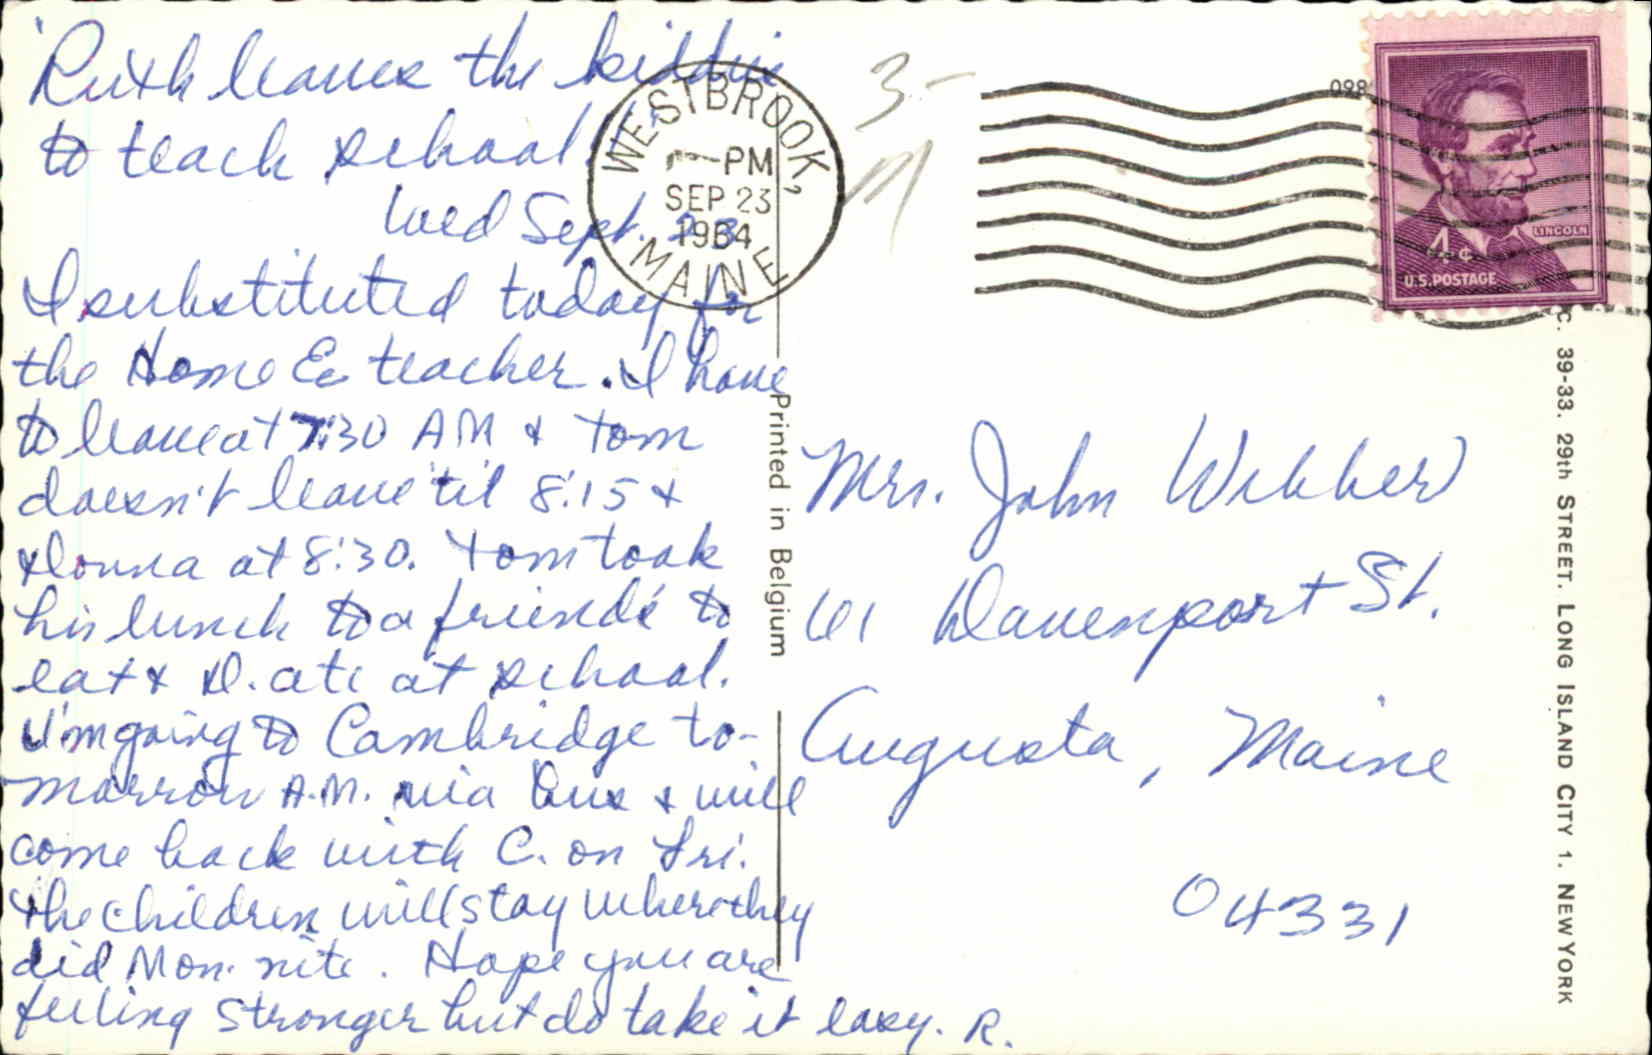 Ruth leaves the kiddies
to teach school.
Wed Sept. 23
I substituted today for
the Home Ec teacher. I have
to leave at 7:30 AM & Tom
doesn't leave 'til 8:15 &
Donna at 8:30. Tom took
his lunch to a friend's to
eat & D. ate at school.
I'm going to Cambridge to-
morrow A.M. via bus & will
come back with C. on Fri.
The children will stay where they
did Mon. nite. Hope you are
feeling stronger but do take it easy. R.
WESTBROOK,
PM
SEP 23
1964
MAINE
3-
M
098
LINCOLN
4¢
U.S. POSTAGE
Printed in Belgium
Mrs. John Webber
61 Davenport St.
Augusta, Maine
04331
C. 39-33. 29th STREET. LONG ISLAND CITY 1. NEW YORK